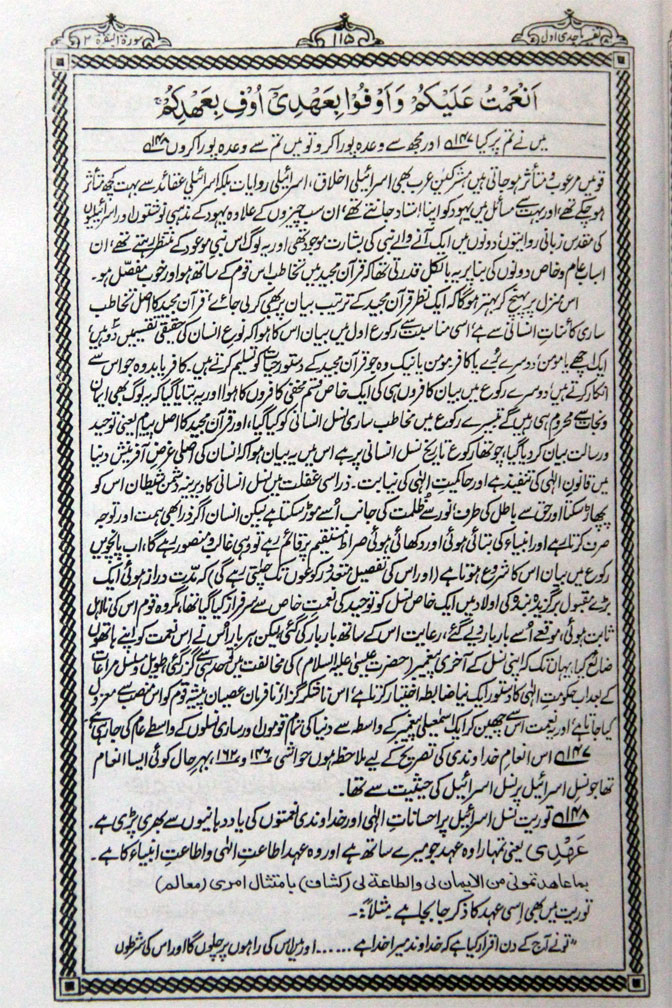 تفسیر ماجدی اول ۱۱۵ سورۃ البقرۃ ۲
اَنْعَمْتُ عَلَیْکُمْ وَ اَوْفُوْا بِعَهْدِیْۤ اُوْفِ بِعَهْدِکُمْ ۚ
میں نے تم پر کیا ۱۴۷؎ اور مجھ سے وعدہ پورا کرو تو میں تم سے وعدہ پورا کروں ۱۴۸؎
قومیں مرعوب و متأثر ہو جاتی ہیں مشرکین عرب بھی اسرائیلی اخلاق، اسرائیلی روایات بلکہ اسرائیلی عقائد سے بہت کچھ متأثر
ہو چکے تھے، اور بہت سے مسائل میں یہود کو اپنا استاد جانتے تھے، ان سب چیزوں کے علاوہ یہود کے مذہبی نوشتوں اور اسرائیلیوں
کی مقدس زبانی روایتوں، دونوں میں ایک آنے والے نبی کی بشارت موجود تھی اور یہ لوگ اس نبی موعود کے منتظر رہتے تھے، ان
اسباب عام و خاص دونوں کی بنا پر یہ بالکل قدرتی تھا کہ قرآن مجید میں تخاطب اس قوم کے ساتھ ہو اور خوب مفصل ہو۔
اس منزل پر پہنچ کر بہتر ہوگا کہ ایک نظر قرآن مجید کے ترتیب بیان بھی کر لی جائے، قرآن مجید کا اصل تخاطب
ساری کائنات انسانی سے ہے، اسی مناسبت سے رکوع اول میں بیان اس کا ہوا کہ نوع انسان کی حقیقی تقسیمیں دو ہیں،
ایک اچھے یا مومن، دوسرے بُرے یا کافر مومن یا نیک وہ جو قرآن مجید کے دستور حیات کو تسلیم کرتے ہیں۔ کافر یا بد وہ جو اس سے
انکار کرتے ہیں، دوسرے رکوع میں بیان کافروں ہی کی ایک خاص قسم مخفی کافروں کا ہوا اور یہ بتایا گیا کہ یہ لوگ بھی ایمان
و نجات سے محروم ہی ہیں گے تیسرے رکوع میں مخاطب ساری نسل انسانی کو کیا گیا، اور قرآن مجید کا اصل پیام یعنی توحید
و رسالت بیان کر دیا گیا، چوتھا رکوع تاریخ نسل انسانی پر ہے اس میں یہ بیان ہوا کہ انسان کی اصلی غرض آفرینش دنیا
میں قانون الٰہی کی تنفیذ ہے اور حاکمیت الٰہی کی نیابت۔ ذرا سی غفلت میں نسل انسانی کا دیرینہ دشمن شیطان اس کو
پچھاڑ سکتا اور حق سے باطل کی طرف، نور سے ظلمت کی جانب اُسے موڑ سکتا ہے لیکن انسان اگر ذرا بھی ہمت اور توجہ
صرف کرتا ہے اور انبیاء کی بتائی ہوئی اور دکھائی ہوئی صراط مستقیم پر قائم رہے تو وہی غالب و منصور رہے گا، اب پانچویں
رکوع میں بیان اس کا شروع ہوتا ہے (اور اس کی تفصیل متعدد رکوعوں تک چلتی رہے گی) کہ مدت دراز ہوئی ایک
بڑے مقبول برگزیدہ بندہ کی اولاد میں ایک خاص نسل کو توحید کی نعمت خاص سے سرفراز کیا گیا تھا، مگر وہ قوم اس کی نا اہل
ثابت ہوئی، موقعے اُسے بار بار دیے گئے، رعایت اس کے ساتھ بار بار کی گئی لیکن ہر بار اس نے اس نعمت کو اپنے ہاتھوں
ضائع کیا، یہاں تک کہ اپنی نسل کے آخری پیغمبر (حضرت عیسیٰ علیہ السلام) کی مخالفت میں تو حد ہی سے گزر گئی، طویل و مسلسل مراعات
کے بعد اب حکومت الٰہی کا دستور ایک نیا ضابطہ اختیار کرتا ہے، اس ناشکر گزار نافرمان عصیان پیشہ قوم کو اس منصب سے معزول
کیا جاتا ہے، اور نعمت اس سے چھین کر ایک اسمٰعیلی پیغمبر کے واسطہ سے دنیا کی تمام قوموں اور ساری نسلوں کے واسطے عام کی جارہی ہے
۱۴۷؎ اس انعام خداوندی کی تصریح کے لیے ملاحظہ ہوں حواشی ۱۴۶ و ۱۶۲، بہر حال کوئی ایسا انعام
تھا جو نسل اسرائیل پر نسل اسرائیل کی حیثیت سے تھا۔
۱۴۸؎ توریت نسل اسرائیل پر احسانات الٰہی اور خداوندی نعمتوں کی یاد دہانیوں سے بھری پڑی ہے۔
عَهْدِی یعنی تمہارا وہ عہد جو میرے ساتھ ہے اور وہ عہد اطاعت الٰہی و اطاعت انبیاء کا ہے۔
بما عاهدتمونی من الایمان لی والطاعة لی (کشاف) بامتثال امری (معالم)
توریت میں بھی اسی عہد کا ذکر جا بجا ہے مثلاً:۔
”تو نے آج کے دن اقرار کیا ہے کہ خداوند میرا خدا ہے...... اور میں اس کی راہوں پر چلوں گا اور اس کی شرطوں